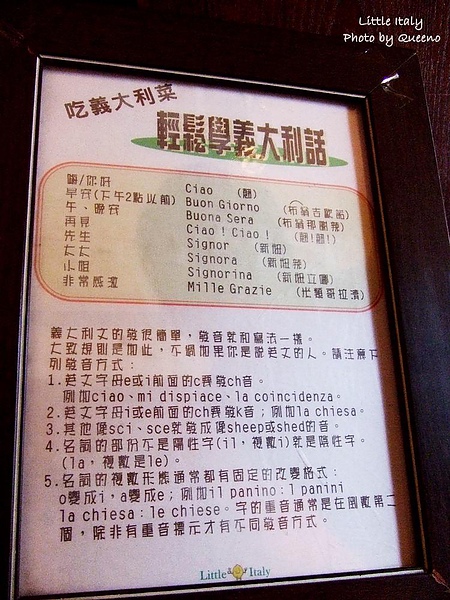 Little Italy
Photo by Queeno
吃義大利菜
輕鬆學義大利話
嗨/你好 Ciao (翹)
早安(下午2點以前) Buon Giorno (布翁吉歐諾)
午、晚安 Buona Sera (布翁那瑟辣)
再見 Ciao ! Ciao ! (翹!翹!)
先生 Signor (新妞)
太太 Signora (新妞辣)
小姐 Signorina (新妞立娜)
非常感謝 Mille Grazie (米類哥拉濟)
義大利文的發很簡單，發音就和寫法一樣。
大致規則是如此，不過如果你是說英文的人。請注意下
列發音方式：
1.英文字母e或i前面的c要發ch音。
例如ciao、mi dispiace、la coincidenza。
2.英文字母i或e前面的ch要發k音；例如la chiesa。
3.其他像sci、sce就發成像sheep或shed的音。
4.名詞的部份不是陽性字(il，複數i)就是陰性字。
(la，複數是le)。
5.名詞的複數形態通常都有固定的改變格式：
o變成i，a變成e；例如il panino：I panini
la chiesa：le chiese。字的重音通常是在倒數第二
個，除非有重音標示才有不同發音方式。
Little Italy